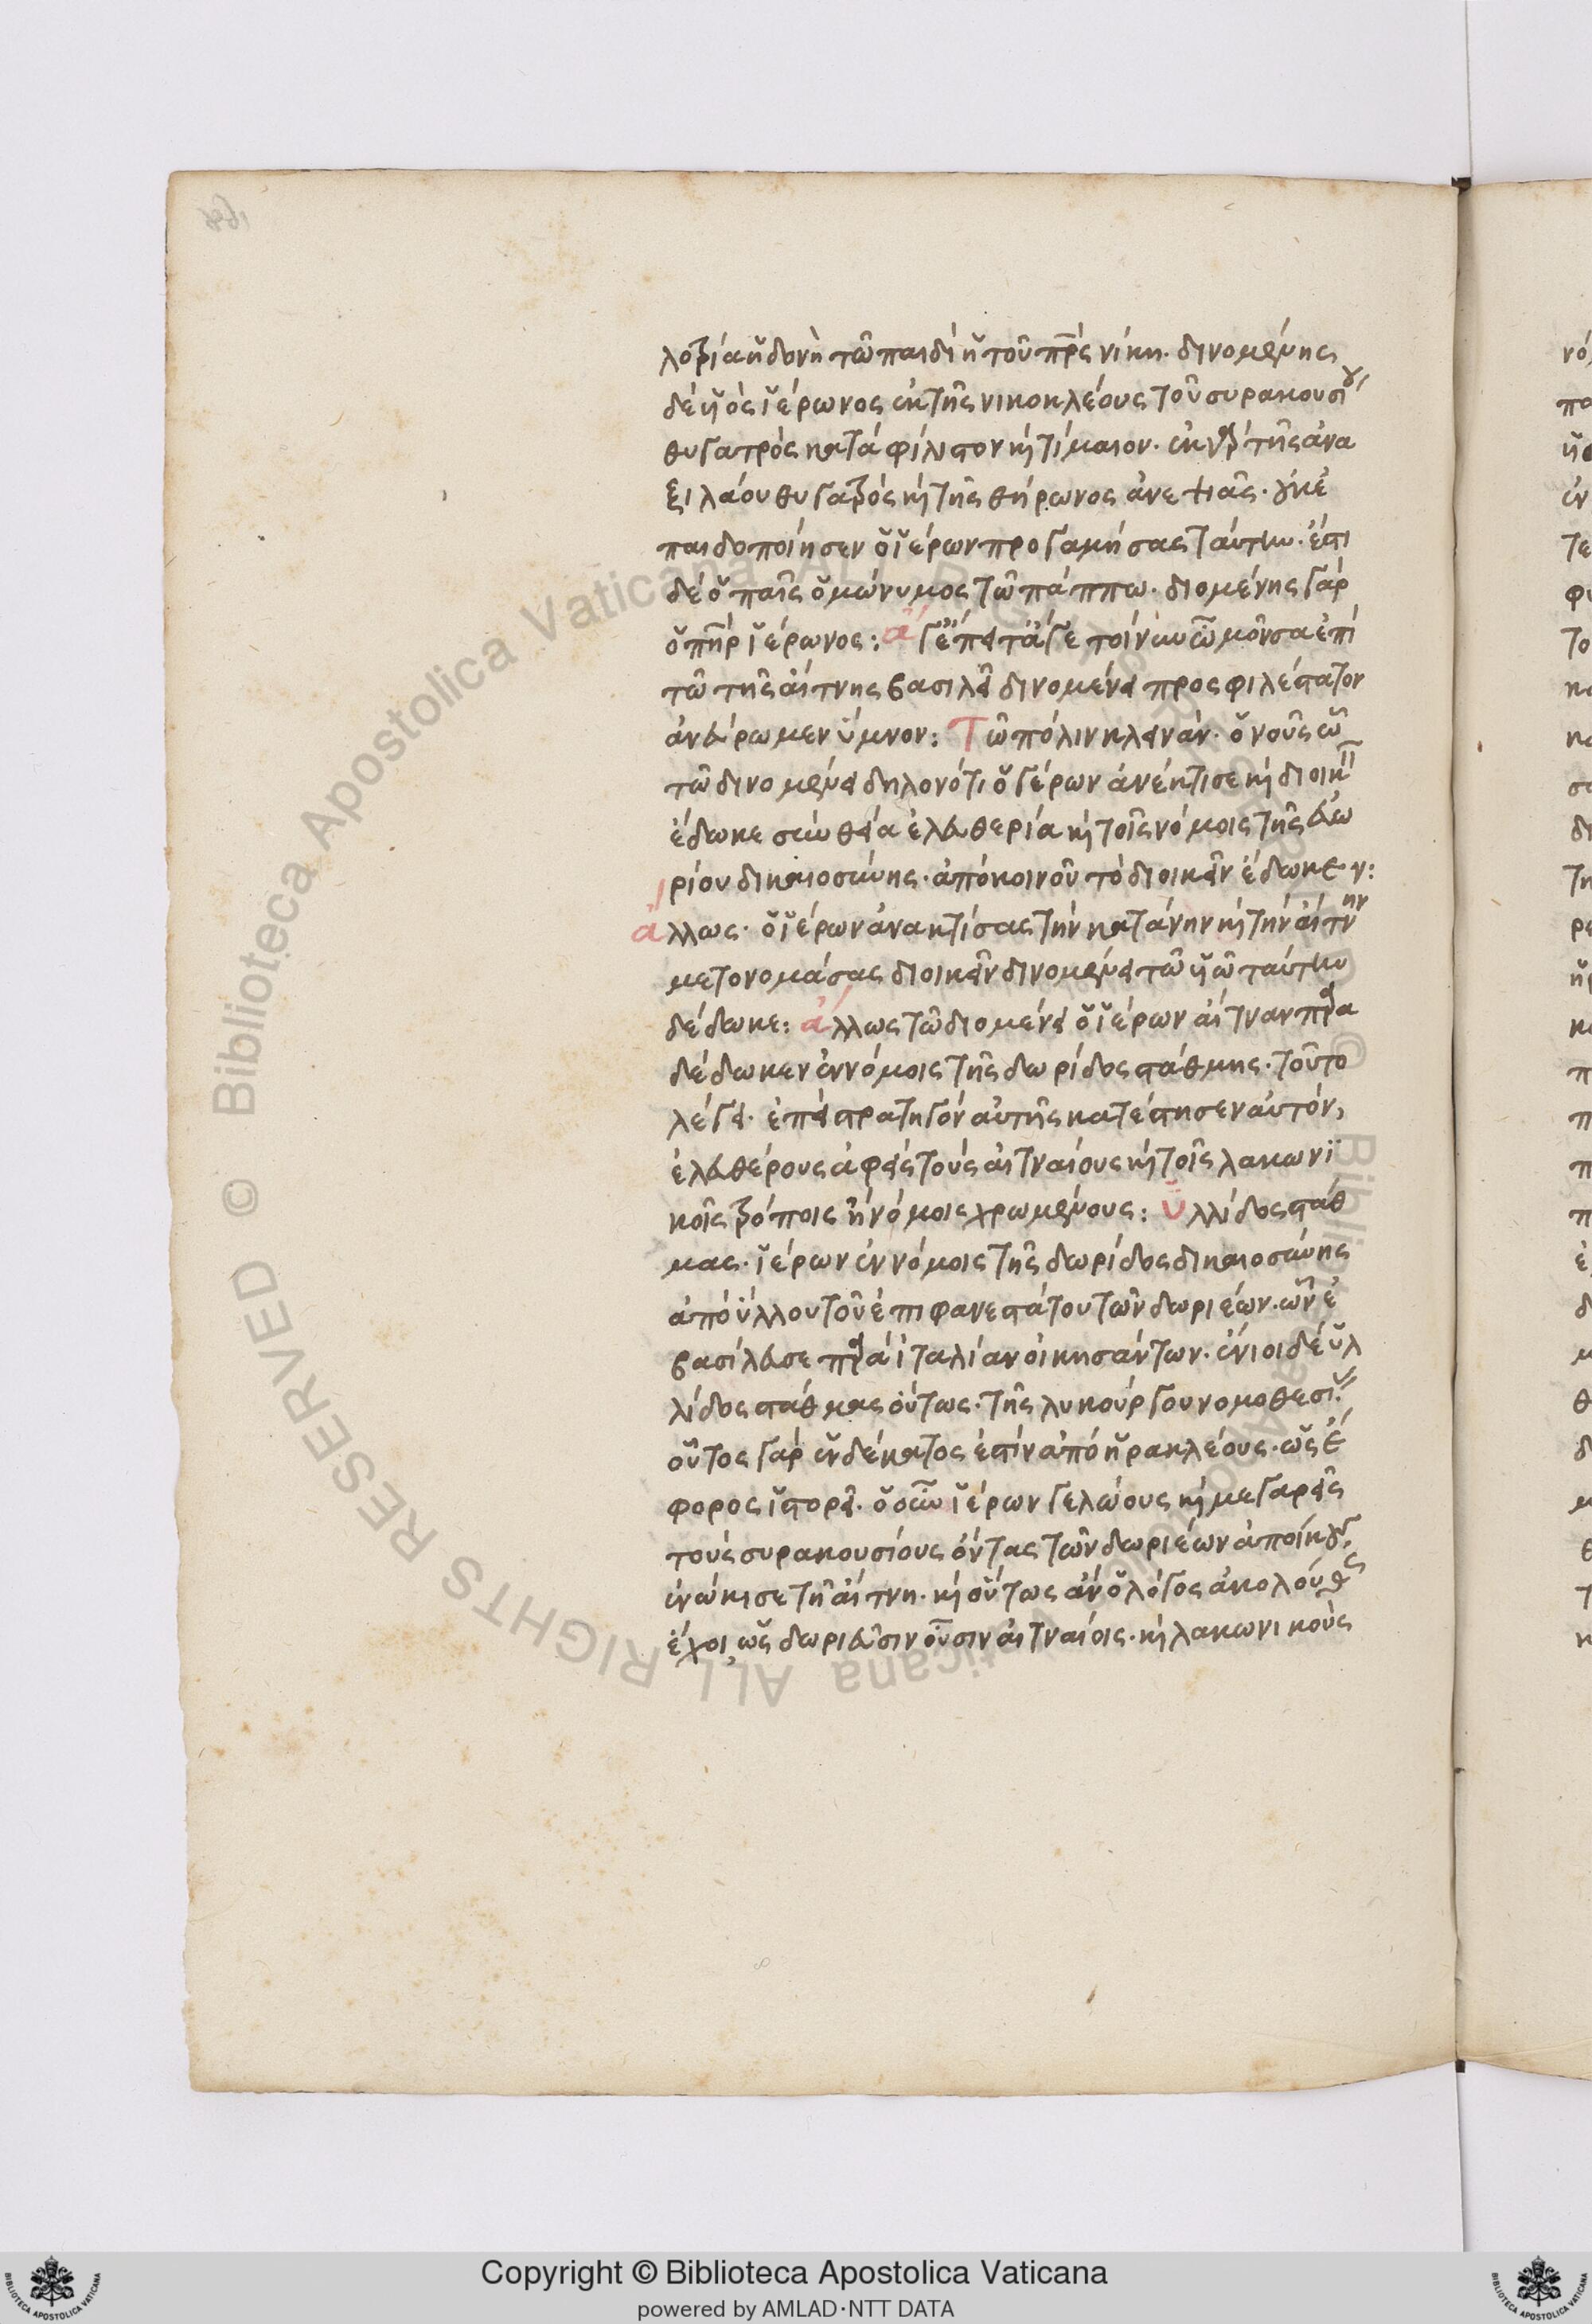 λοτρία ἡδονὴ τῶ παιδὶ ἡ τοῦ πρς νίκη. δινομένης
δὲ υἱὸς ἱέρωνος ἐκ τῆς νικοκλέους τοῦ συρακουσίου
θυγατρὸς κατὰ φίλιστον καὶ τίμαιον. ἐκ γὰρ τῆς ἀνα
ξιλάου θυγατρὸς καὶ τῆς θήρωνος ἀνεψιᾶς. οὐκ ἐ
παιδοποίησεν ὁ ἱέρων προγαμήσας ταύτην. ἔστι
δὲ ὁ παῖς ὁμώνυμος τῶ πάππω. διομένης γὰρ
ὁ πηρ ἱέρωνος: ἄγ' ἔπειτα ἄγε τοίνυν ὦ μοῦσα ἐπὶ
τῶ τῆς αἴτνης βασιλεῖ δινομένει προσφιλέστατον
ἀνεύρωμεν ὕμνον: Τῶ πόλιν κλεινάν. ὁ νοῦς ὧ
τῶ δινομένει δηλονότι ὁ γέρων ἀνέκτισε καὶ διοικεῖν
ἔδωκε σὺν θεία ἐλευθερία καὶ τοῖς νόμοις τῆς εὐω
ρίου δικαιοσύνης. ἀπὸ κοινοῦ τὸ διοικεῖν ἔδωκεν:
ἄλλως. ὁ ἱέρων ἀνακτίσας τὴν κατάνην καὶ τὴν αἴτνην
μετονομάσας διοικεῖν δινομένει τῶ υἱῶ ταύτην
δέδωκε: ἄλλως τῶ διομένει ὁ ἱέρων αἴτναν παρα
δέδωκεν ἐν νόμοις τῆς δωρίδος στάθμης. τοῦτο
λέγει. ἐπεὶ στρατηγὸν αὐτῆς κατέστησεν αὐτόν,
ἐλευθέρους ἀφεὶς τοὺς αἰτναίους καὶ τοῖς λακωνι
κοῖς τρόποις ἢ νόμοις χρωμένους: ὑλλίδος στάθ
μας. ἱέρων ἐν νόμοις τῆς δωρίδος δικαιοσύνης
ἀπὸ ὕλλου τοῦ ἐπιφανεστάτου τῶν δωριέων. ὧν ἐ
βασίλευσε παρὰ ἰταλίαν οἰκησάντων. ἔνιοι δὲ ὑλ
λίδος στάθμας οὕτως. τῆς λυκούργου νομοθεσίας
οὗτος γὰρ ἑνδέκατος ἐστὶν ἀπὸ ἡρακλέους. ὡς ἔ
φορος ἱστορεῖ. ὁ οὖν ἱέρων γελώους καὶ μεγαρεῖς
τοὺς συρακουσίους ὄντας τῶν δωριέων ἀποίκους
ἐνώκισε τῆ αἴτνη. καὶ οὕτως ἂν ὁ λόγος ἀκολούθως
ἔχοι, ὡς δωριεῦσιν οὖσιν αἰτναίοις. καὶ λακωνικοὺς